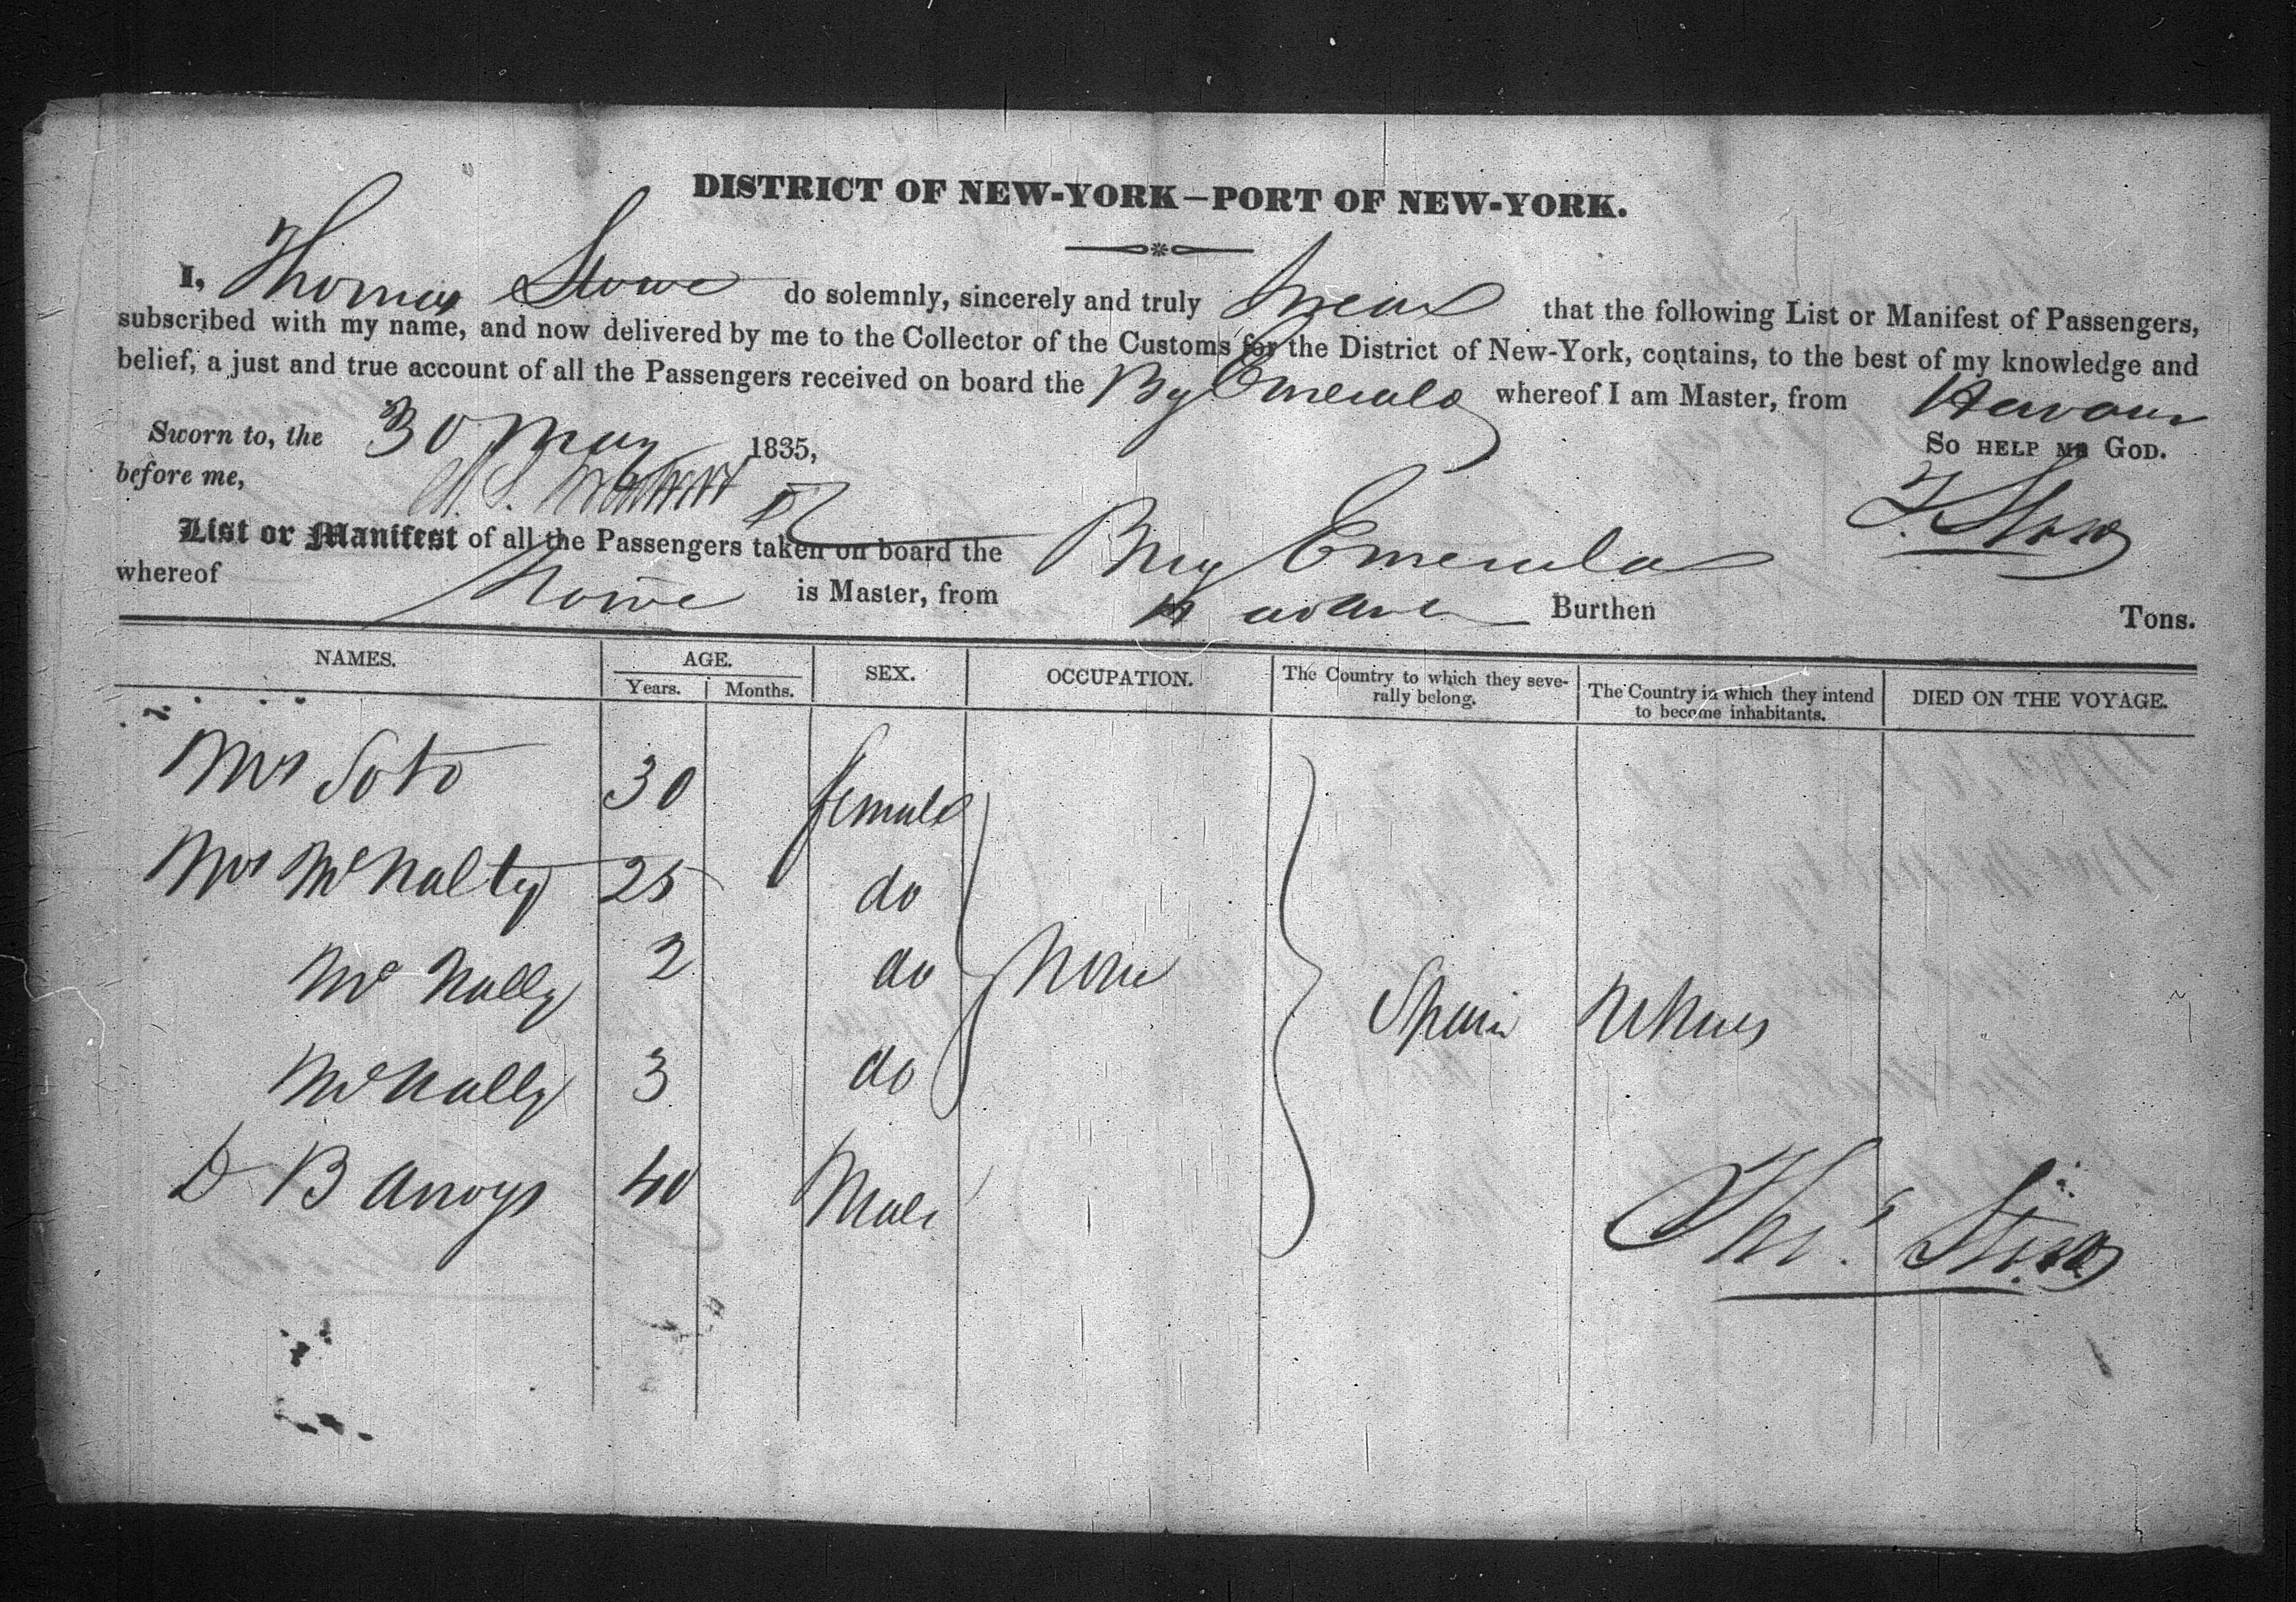 DISTRICT OF NEW-YORK—PORT OF NEW-YORK.
I, Thomas Stowe do solemnly, sincerely and truly Swear that the following List or Manifest of Passengers,
subscribed with my name, and now delivered by me to the Collector of the Customs for the District of New-York, contains, to the best of my knowledge and
belief, a just and true account of all the Passengers received on board the Brig Emerald whereof I am Master, from Havana
Sworn to, the 30 May 1835, SO HELP ME GOD.
before me, T. Stowe
List or Manifest of all the Passengers taken on board the Brig Emerald
whereof Stowe is Master, from Havana Burthen Tons.
NAMES. AGE. SEX. OCCUPATION. The Country to which they seve- The Country in which they intend DIED ON THE VOYAGE.
Years. Months. rally belong. to become inhabitants.
Mrs Soto 30 female
Mrs McNalty 25 do
McNally 2 do None Spain
McNally 3 do
D B 40 Male
Thos. Stowe